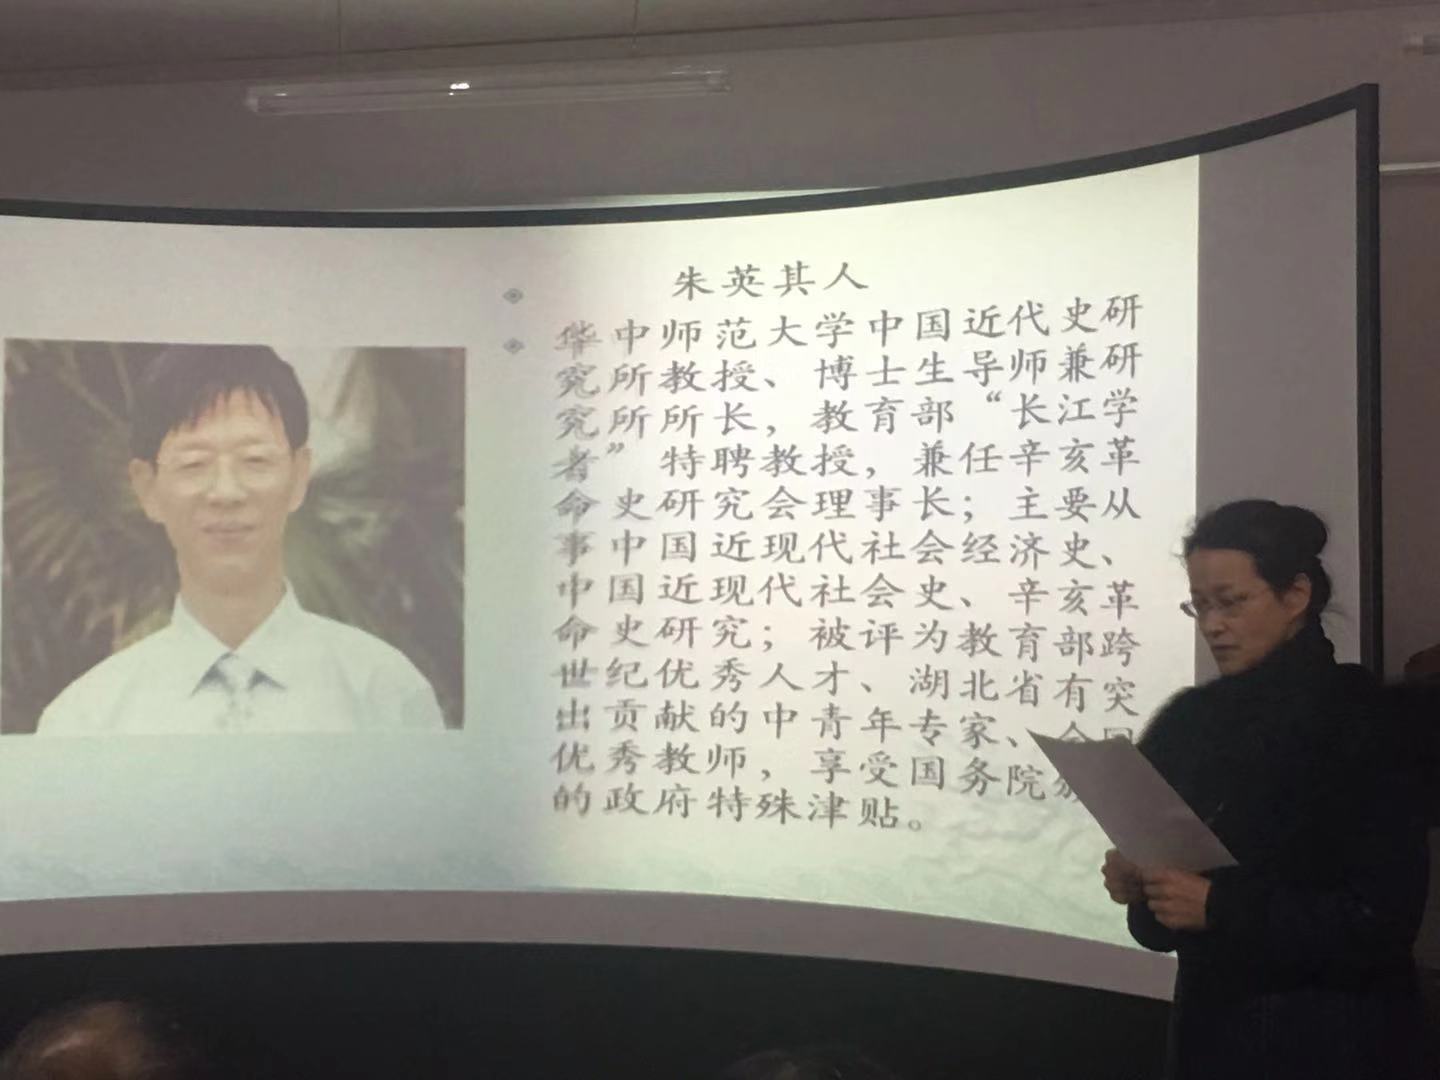 朱英其人
华中师范大学中国近代史研
究所教授、博士生导师兼研
究所所长，教育部“长江学
者”特聘教授，兼任辛亥革
命史研究会理事长；主要从
事中国近现代社会经济史、
中国近现代社会史、辛亥革
命史研究；被评为教育部跨
世纪优秀人才、湖北省有突
出贡献的中青年专家、
优秀教师，享受国务院
的政府特殊津贴。